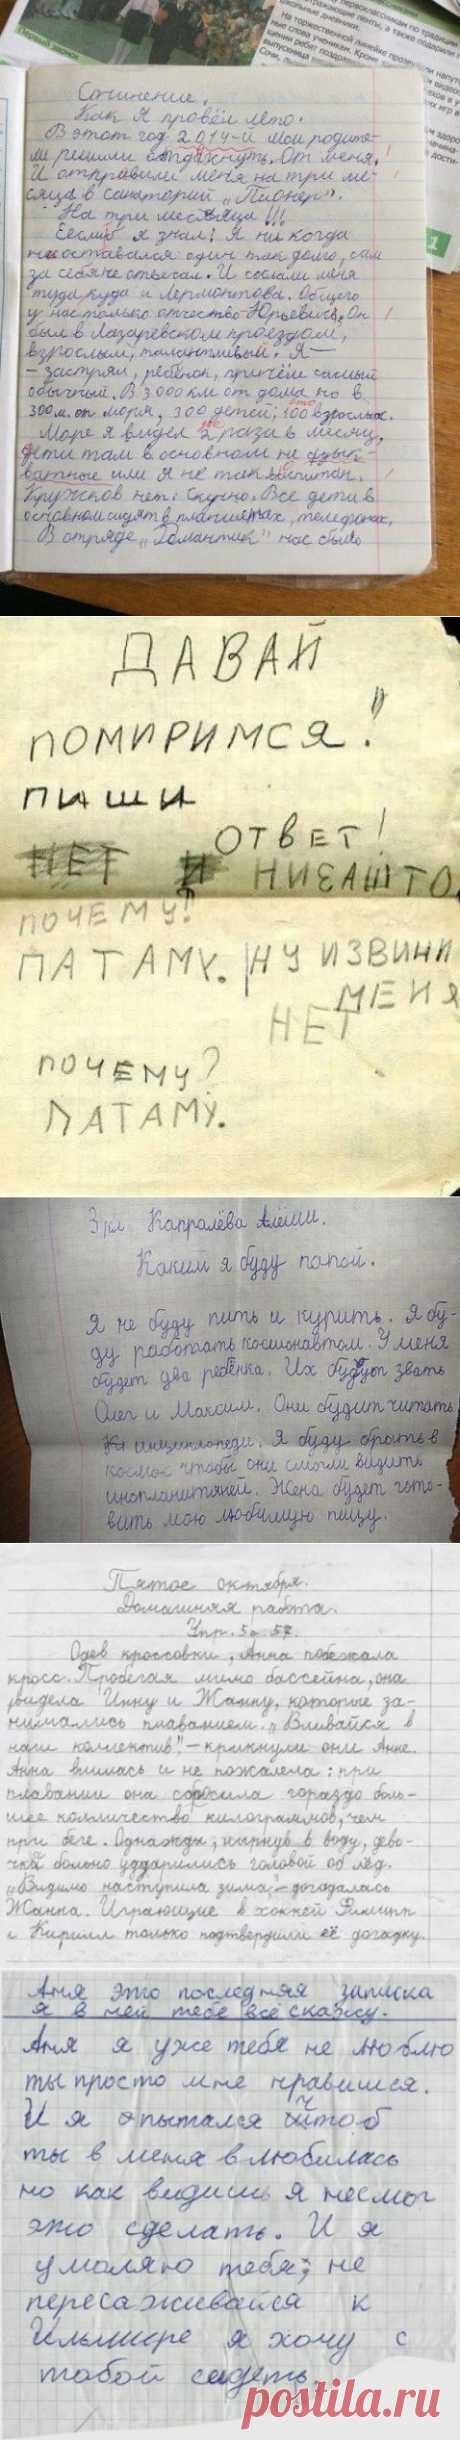 Сочинение.
Как я провёл лето.
В этот год 2014-й мои родите-
ли решили отдахнуть. От меня.
И отправили меня на три ме-
сяца в санаторий „Пионер".
На три месяца!!!
Еесли б я знал! Я ни когда
не оставался один так долго, сам
за себя не отвечал. И сослали меня
туда, куда и Лермонтова. Общего
у нас только отчество Юрьевич. Он
был в Лазаревском проездом,
взрослым, талантливый. Я—
– застрял, ребёнок, причём самый
обычный. В 3000 км от дома но в
300 м. от моря, 300 детей, 100 взрослых.
Море я видел 2 раза в месяц,
дети там в основном не
ватные или я не так воспитан.
Кружков нет. Скучно. Все дети в
основном сидят в планшетах, телефонах.
В отряде „Романтик" нас было
ДАВАЙ
ПОМИРИМСЯ!
ПИШИ
ОТВЕТ!
НЕТ И НИЗАШТО
ПОЧЕМУ?
ПАТАМУ. НУ ИЗВИНИ
МЕНЯ
НЕТ
ПОЧЕМУ?
ПАТАМУ.
3 кл Капралёва Алёши.
Каким я буду папой.
Я не буду пить и курить. Я бу-
ду работать космонавтом. У меня
будет два ребёнка. Их будут звать
Олег и Максим. Они будит читать
инциклопеди. Я буду брать в
космос чтобы они смогли видить
инопланитяней. Жена будет гото-
вить мою любимую пищу.
Пятое октября.
Домашняя работа.
Упр. 57.
Одев кроссовки, Анна побежала
кросс. Пробегая мимо бассейна, она
увидела Инну и Жанну, которые за-
нимались плаванием. „Вливайся в
наш коллектив", – крикнули они Анне.
Анна влилась и не пожалела: при
плавании она сбросила гораздо боль-
шее колличество килограммов, чем
при беге. Однажды, нырнув в воду, дево-
чки больно ударились головой об лёд.
„Видимо наступила зима", – догадалась
Жанна. Играющие в хоккей Филипп
и Кирилл только подтвердили её догадку.
Аня это последняя записка
я в ней тебе всё скажу.
Аня я уже тебя не люблю
ты просто мне нравишся.
И я пытался чтоб
ты в меня влюбилась
но как видишь я несмог
это сделать. И я
умоляю тебя; не
пересаживайся к
Ильмире я хочу с
тобой сидеть.
postila.ru